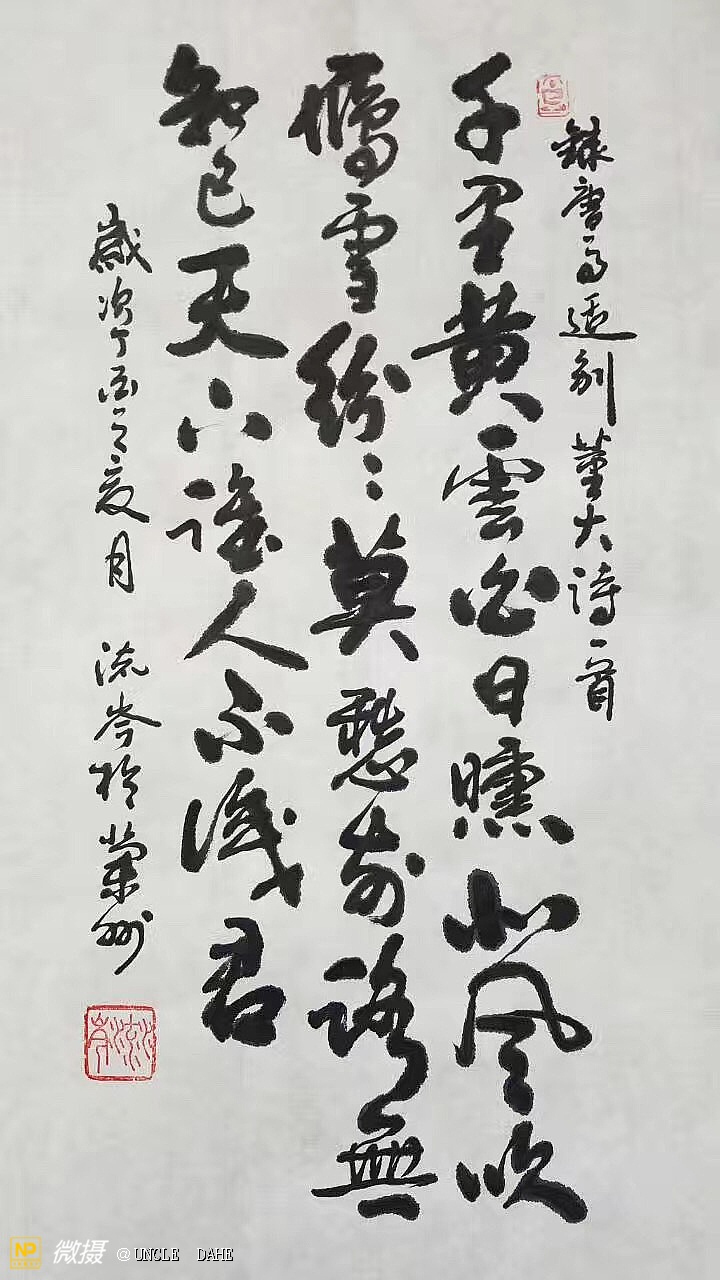 錄唐高适別董大詩一首
千里黃雲白日曛北風吹
鴈雪紛〻莫愁前路無
知己天下誰人不識君
歲次丁酉之夏月 流岑於州
流岑
NP 微摄 @UNCLE DAHE